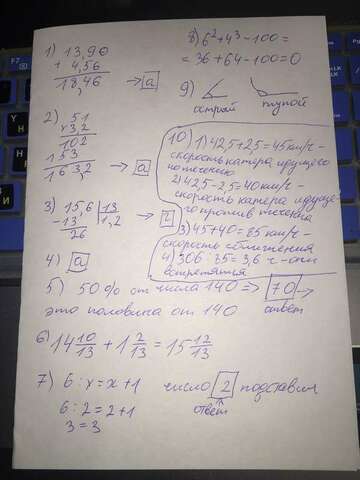 1) 13,90
+ 4,56
18,46 → а
2) 51
×32
102
153
163,2 → а
3) 15,6 | 13
-13 1,2 → г
26
4) а
5) 50% от числа 140 => 70 →
ответ
это половина от 140
6) 14 10/13 + 1 2/13 = 15 12/13
7) 6 : x = x + 1 число 2 подставим
ответ
6 : 2 = 2 + 1
3 = 3
8) 6² + 4³ - 100 =
= 36 + 64 - 100 = 0
9)
острый тупой
10) 1) 42,5 + 2,5 = 45 км/ч -
скорость катера идущего
по течению
2) 42,5 - 2,5 = 40 км/ч -
скорость катера идуще-
го против течения
3) 45 + 40 = 85 км/ч -
скорость сближения
4) 306 : 85 = 3,6 ч - они
встретятся